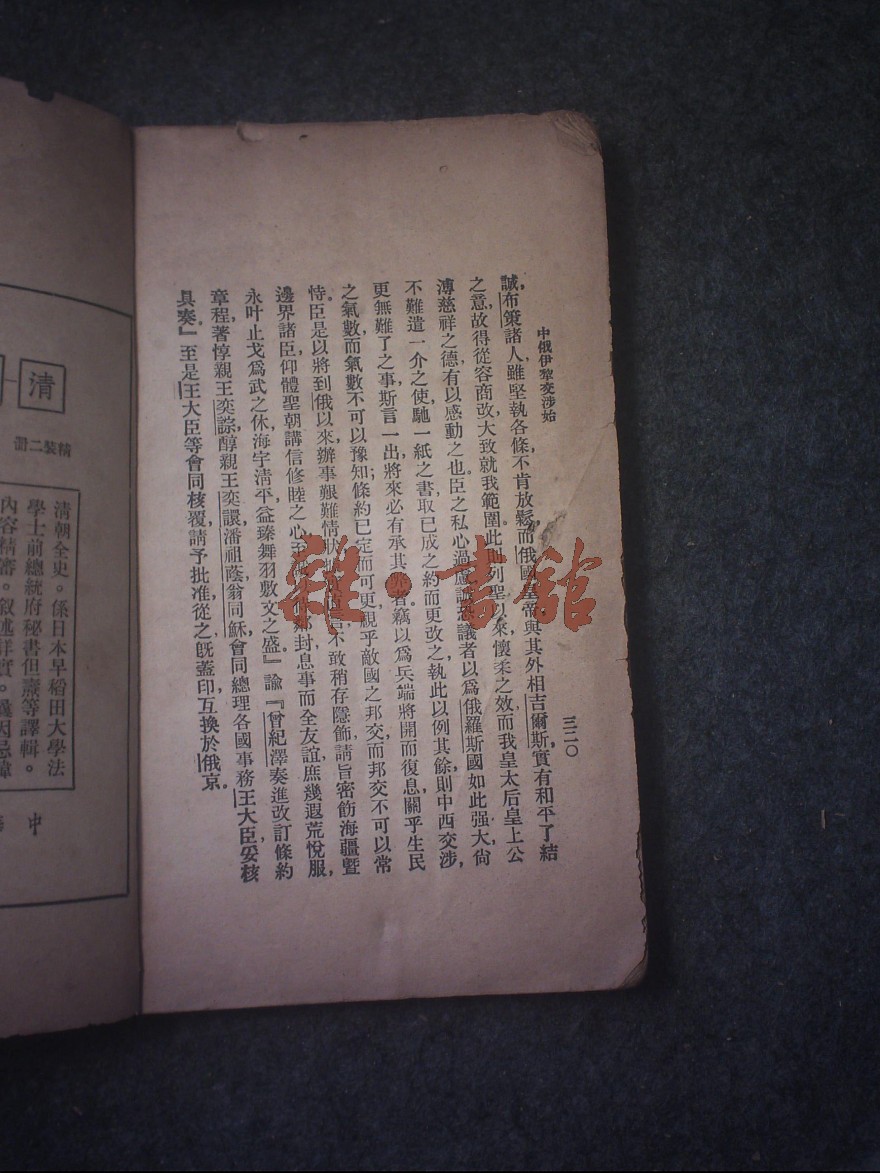 中俄伊犁交涉始
三二〇
誠,布策諸人,雖堅執各條,不肯放鬆,而俄國皇帝與其外相吉爾斯,實有和平了結
之意,故得從容商改,大致就我範圍。此列聖以來懷柔之效,而我皇太后皇上公
溥慈祥之德,有以感動之也。臣之私心過慮,誠恐議者以為俄羅斯國如此强大,尙
不難遣一介之使,馳一紙之書,取已成之約而更改之,執此以例其餘,則中西交涉,
更無難了之事,斯言一出,將來必有承其弊者。竊以為兵端將開而復息,關乎生民
之氣數,而氣數不可以豫知;條約已定而可更,視乎敵國之邦交,而邦交不可以常
恃。臣是以將到俄以來辦事艱難情狀,言不敢稍存隱飾,請旨密飭海疆曁
邊界諸臣,仰體聖朝講信修睦之心,封息事而全友誼,庶幾遐荒悅服,
永叶止戈為武之休,海宇清平,益臻舞羽敷文之盛。』諭『曾紀澤奏進改訂條約
章程,著惇親王奕誴,醇親王奕譞,潘祖蔭,翁同龢,會同總理各國事務王大臣,妥核
具奏。』至是王大臣等會同核覆,請予批准,從之,旣蓋印互換於俄京。
清
精裝二冊
清朝全史。係日本早稻田大學法
學士前總統府秘書但燾等譯輯。
內容精審。叙述詳實。
中